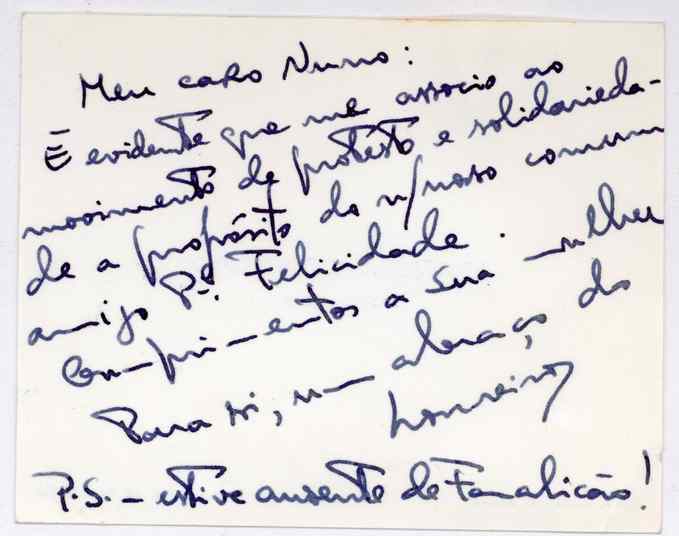 Meu caro Nuno:
É evidente que me associo ao
movimento de protesto e solidarieda-
de a propósito do n/nosso comum
amigo Pe. Felicidade.
Cumprimentos a sua mulher
Para si, um abraço do
Loureiro
P.S. - estive ausente de Famalicão!